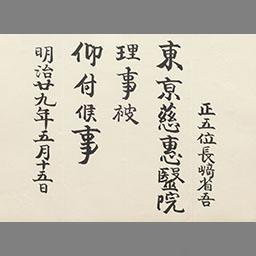 正五位長崎省吾
東京慈惠醫院
理事被
仰付候事
明治廿九年五月十五日